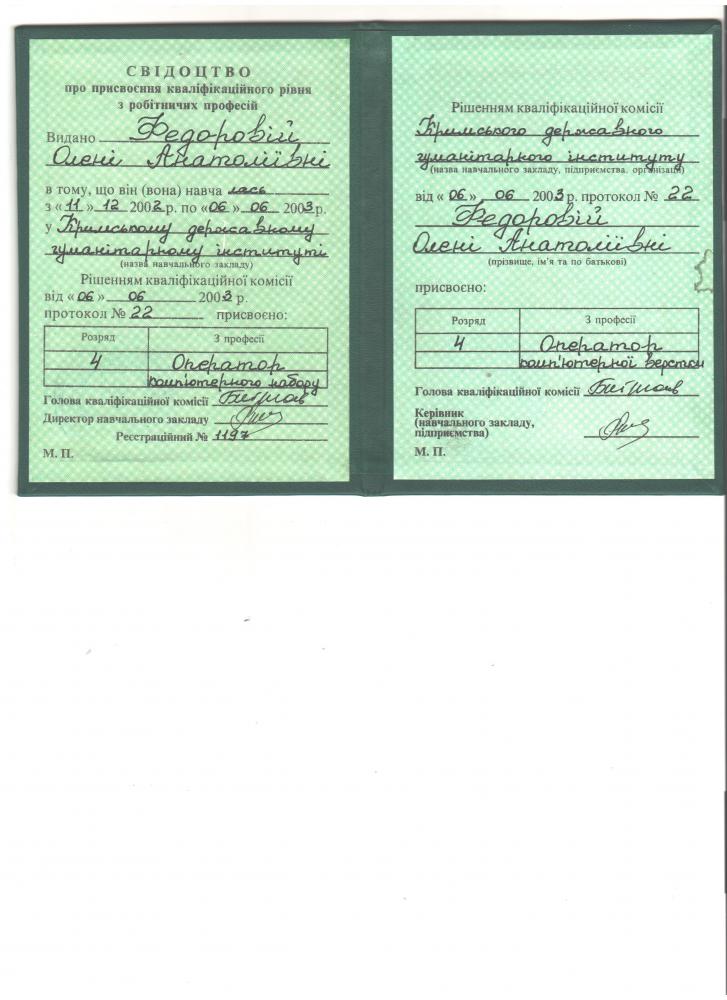 СВІДОЦТВО
про присвоєння кваліфікаційного рівня
з робітничих професій
Видано Федоровій
Олені Анатоліївні
в тому, що він (вона) навча лась
з «11» 12 2002 р. по «06» 06 2003 р.
у Кримському державному
гуманітарному інституті
(назва навчального закладу)
Рішенням кваліфікаційної комісії
від «06» 06 2003 р.
протокол № 22 присвоєно:
Розряд З професії
4 Оператор
комп'ютерного набору
Голова кваліфікаційної комісії
Директор навчального закладу
Реєстраційний № 1197
М. П.
Рішенням кваліфікаційної комісії
Кримського державного
гуманітарного інституту
(назва навчального закладу, підприємства, організації)
від «06» 06 2003 р. протокол № 22
Федоровій
Олені Анатоліївні
(прізвище, ім'я та по батькові)
присвоєно:
Розряд З професії
4 Оператор
комп'ютерної верстки
Голова кваліфікаційної комісії
Керівник
(навчального закладу,
підприємства)
М. П.